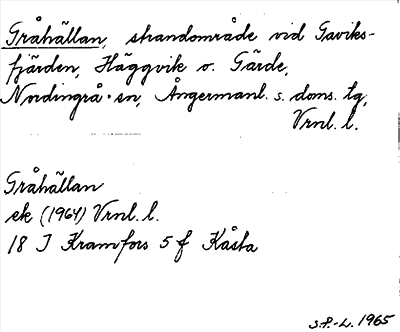 Gråhällan, strandområde vid Gaviks-
fjärden, Häggvik o. Gärde,
Nordingrå sn, Ångermanl. s. doms. tg,
Vrnl. l.
Gråhällan
ek (1964) Vrnl. l.
18 I Kramfors 5 f Kåsta
S.P.-L. 1965